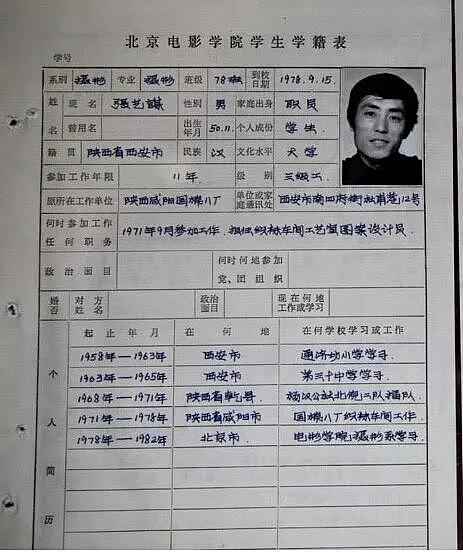 北京电影学院学生学籍表
学号
系别 摄影 专业 摄影 班级 78班 到校日期 1978.9.15.
姓名 现名 张艺谋 性别 男 家庭出身 职员
曾用名 出生年月 50.11. 个人成份 学生
籍贯 陕西省西安市 民族 汉 文化水平 大学
参加工作年限 11年 级别 三级工
原所在工作单位 陕西咸阳国棉八厂 单位或家庭通讯处 西安市南四府街 12号
何时参加工作任何职务 1971年9月参加工作.担任织袜车间工艺室图案设计员.
政治面目 何时何地参加党、团组织
婚否 对方姓名 政治面目 现在何地工作或学习
个人简历 起止年月 在何地 在何学校学习或工作
1958年—1963年 西安市 通济坊小学学习.
1963年—1965年 西安市 第三十中学学习.
1968年—1971年 陕西省乾县. 杨汉公社北倪二队插队.
1971年—1978年 陕西省咸阳市 国棉八厂织袜车间工作.
1978年—1982年 北京市 电影学院摄影系学习.